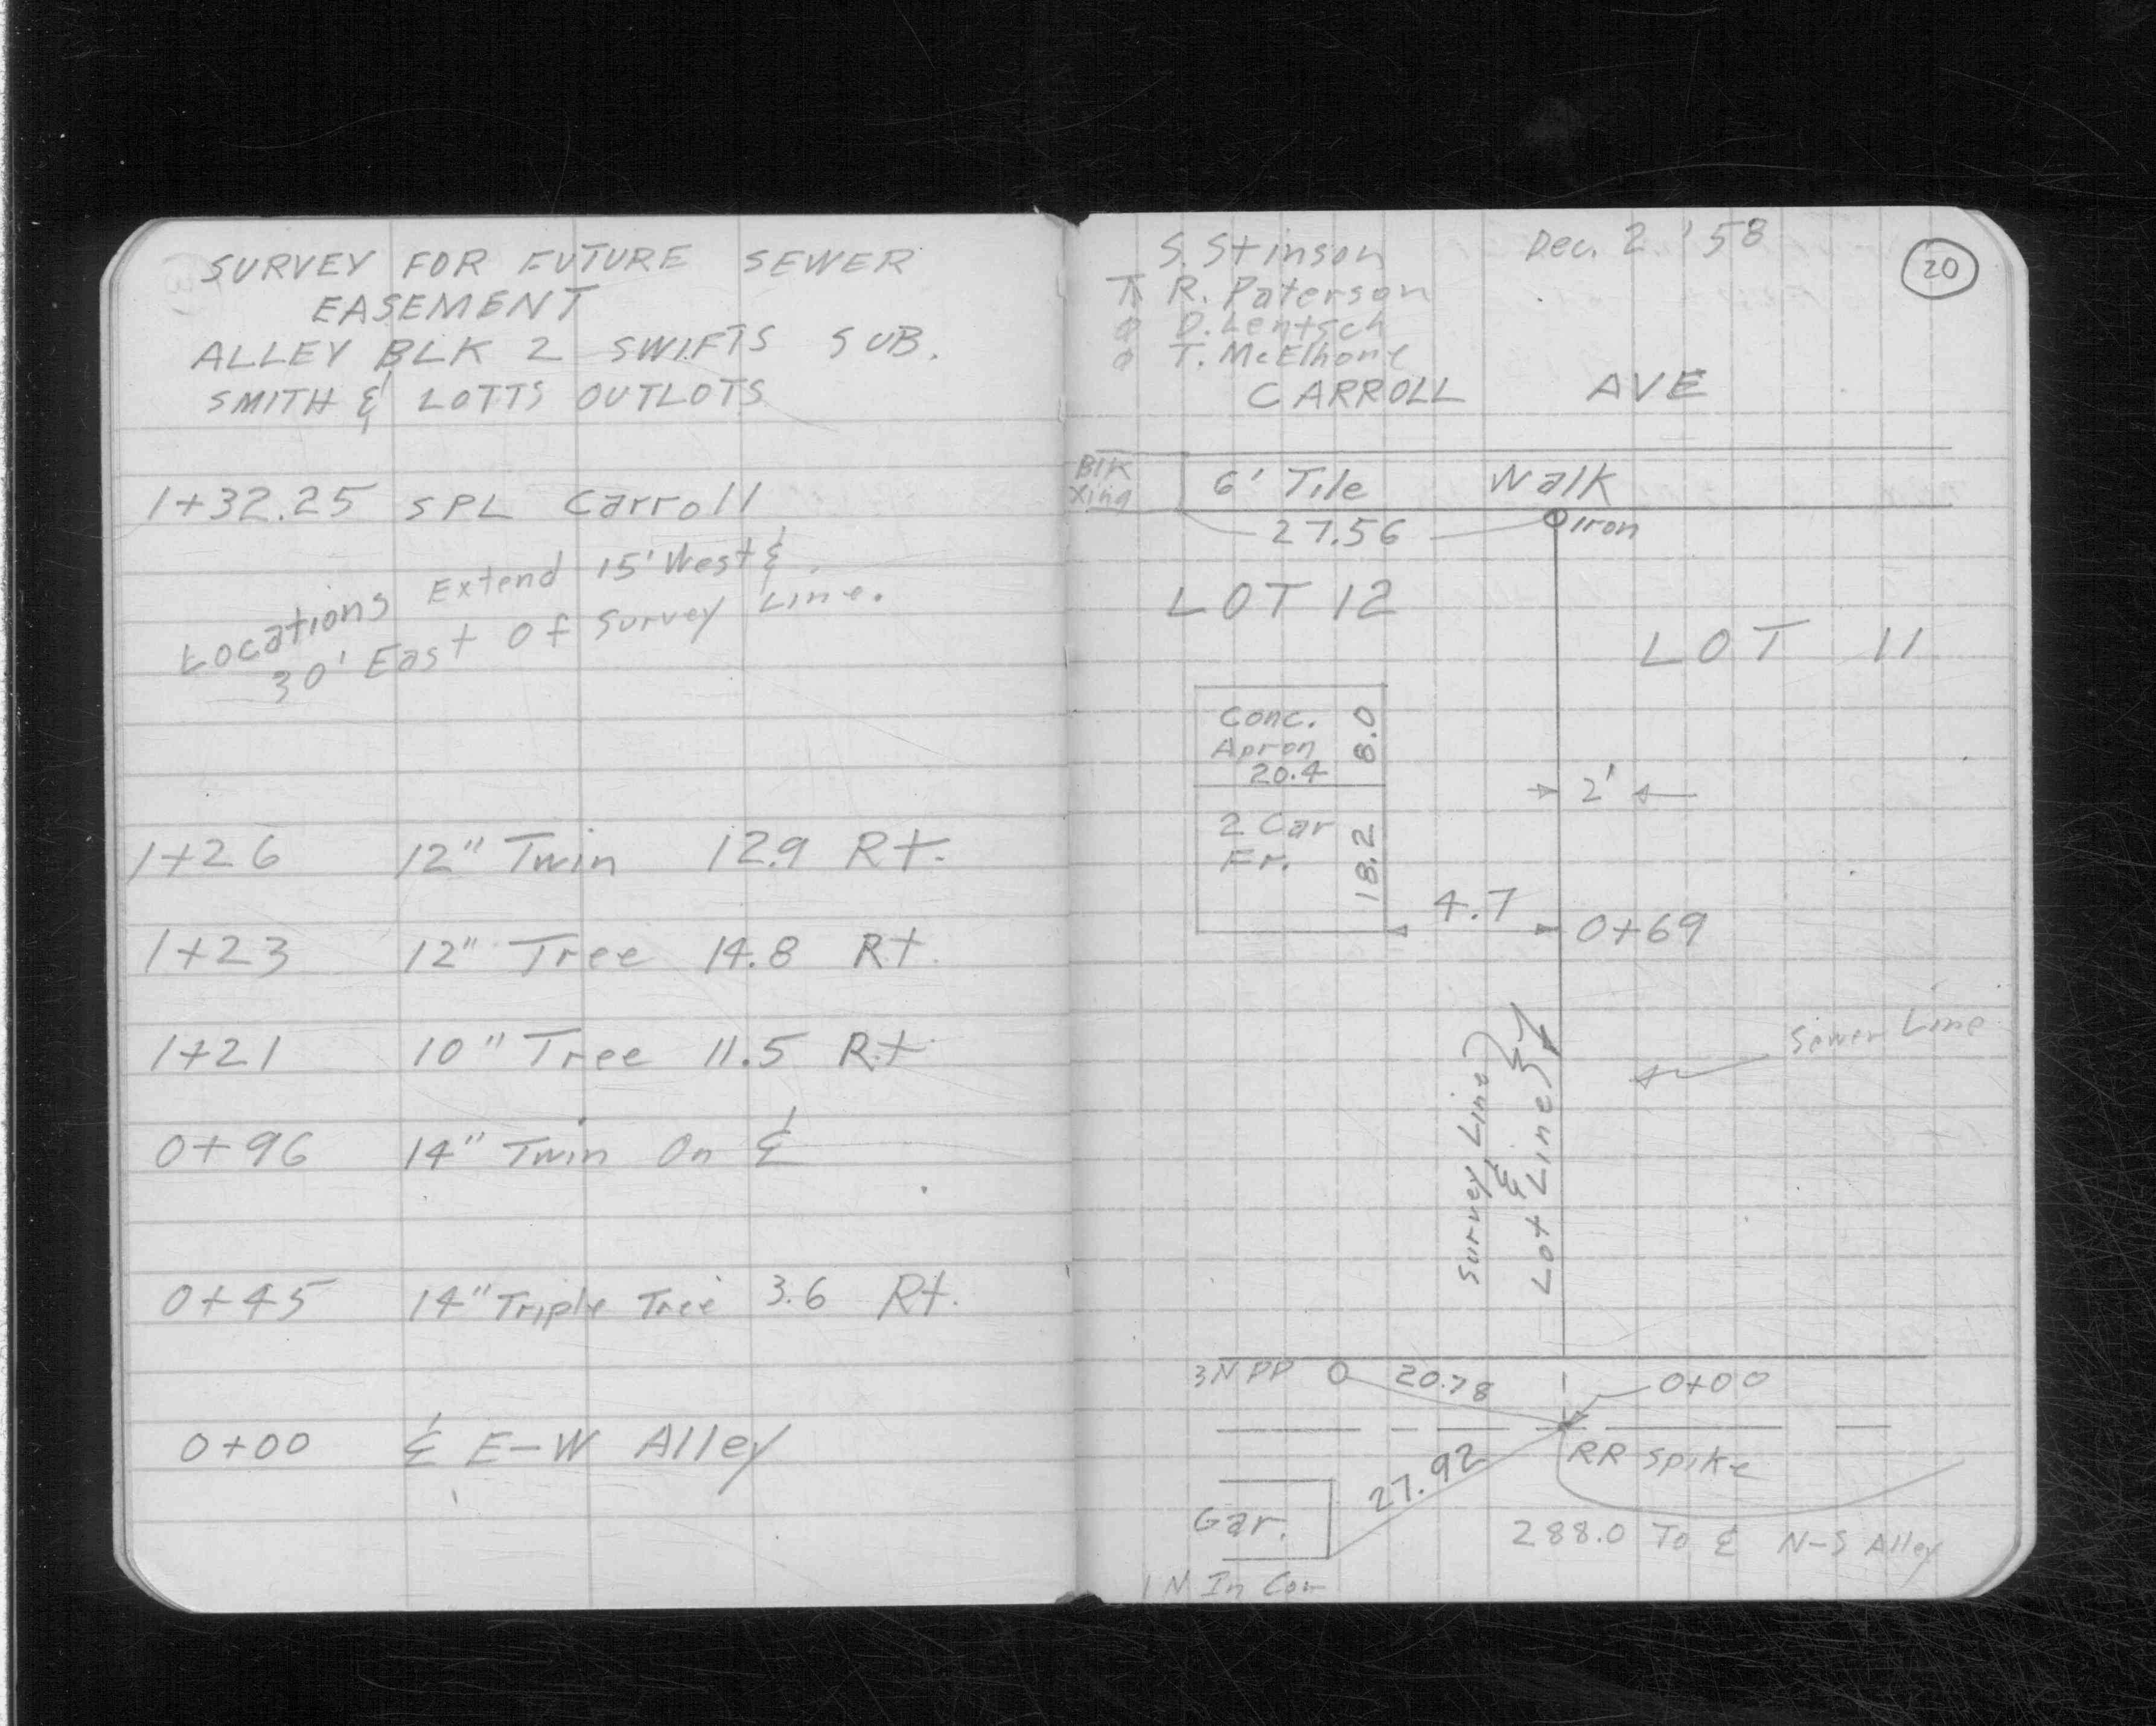 SURVEY FOR FUTURE SEWER
EASEMENT
ALLEY BLK 2 SWIFTS SUB.
SMITH & LOTTS OUTLOTS
1+32.25 SPL Carroll
Locations Extend 15' West &
30' East Of Survey Line.
1+26 12" Twin 12.9 Rt.
1+23 12" Tree 14.8 Rt.
1+21 10" Tree 11.5 Rt.
0+96 14" Twin On ℄
0+45 14" Triple Tree 3.6 Rt.
0+00 ℄ E-W Alley
S. Stinson Dec. 2 '58
20
R. Paterson
D. Lentsch
T. McElhone
CARROLL AVE
Blk
Xing
6' Tile Walk
27.56
Iron
LOT 12
LOT 11
Conc.
Apron
20.4
8.0
2'
2 Car
Fr.
18.2
4.7
0+69
Sewer Line
Survey Line
&
Lot Line
3N PP 20.78 0+00
RR Spike
27.92
Gar.
288.0 To ℄ N-S Alley
1 N In Cor